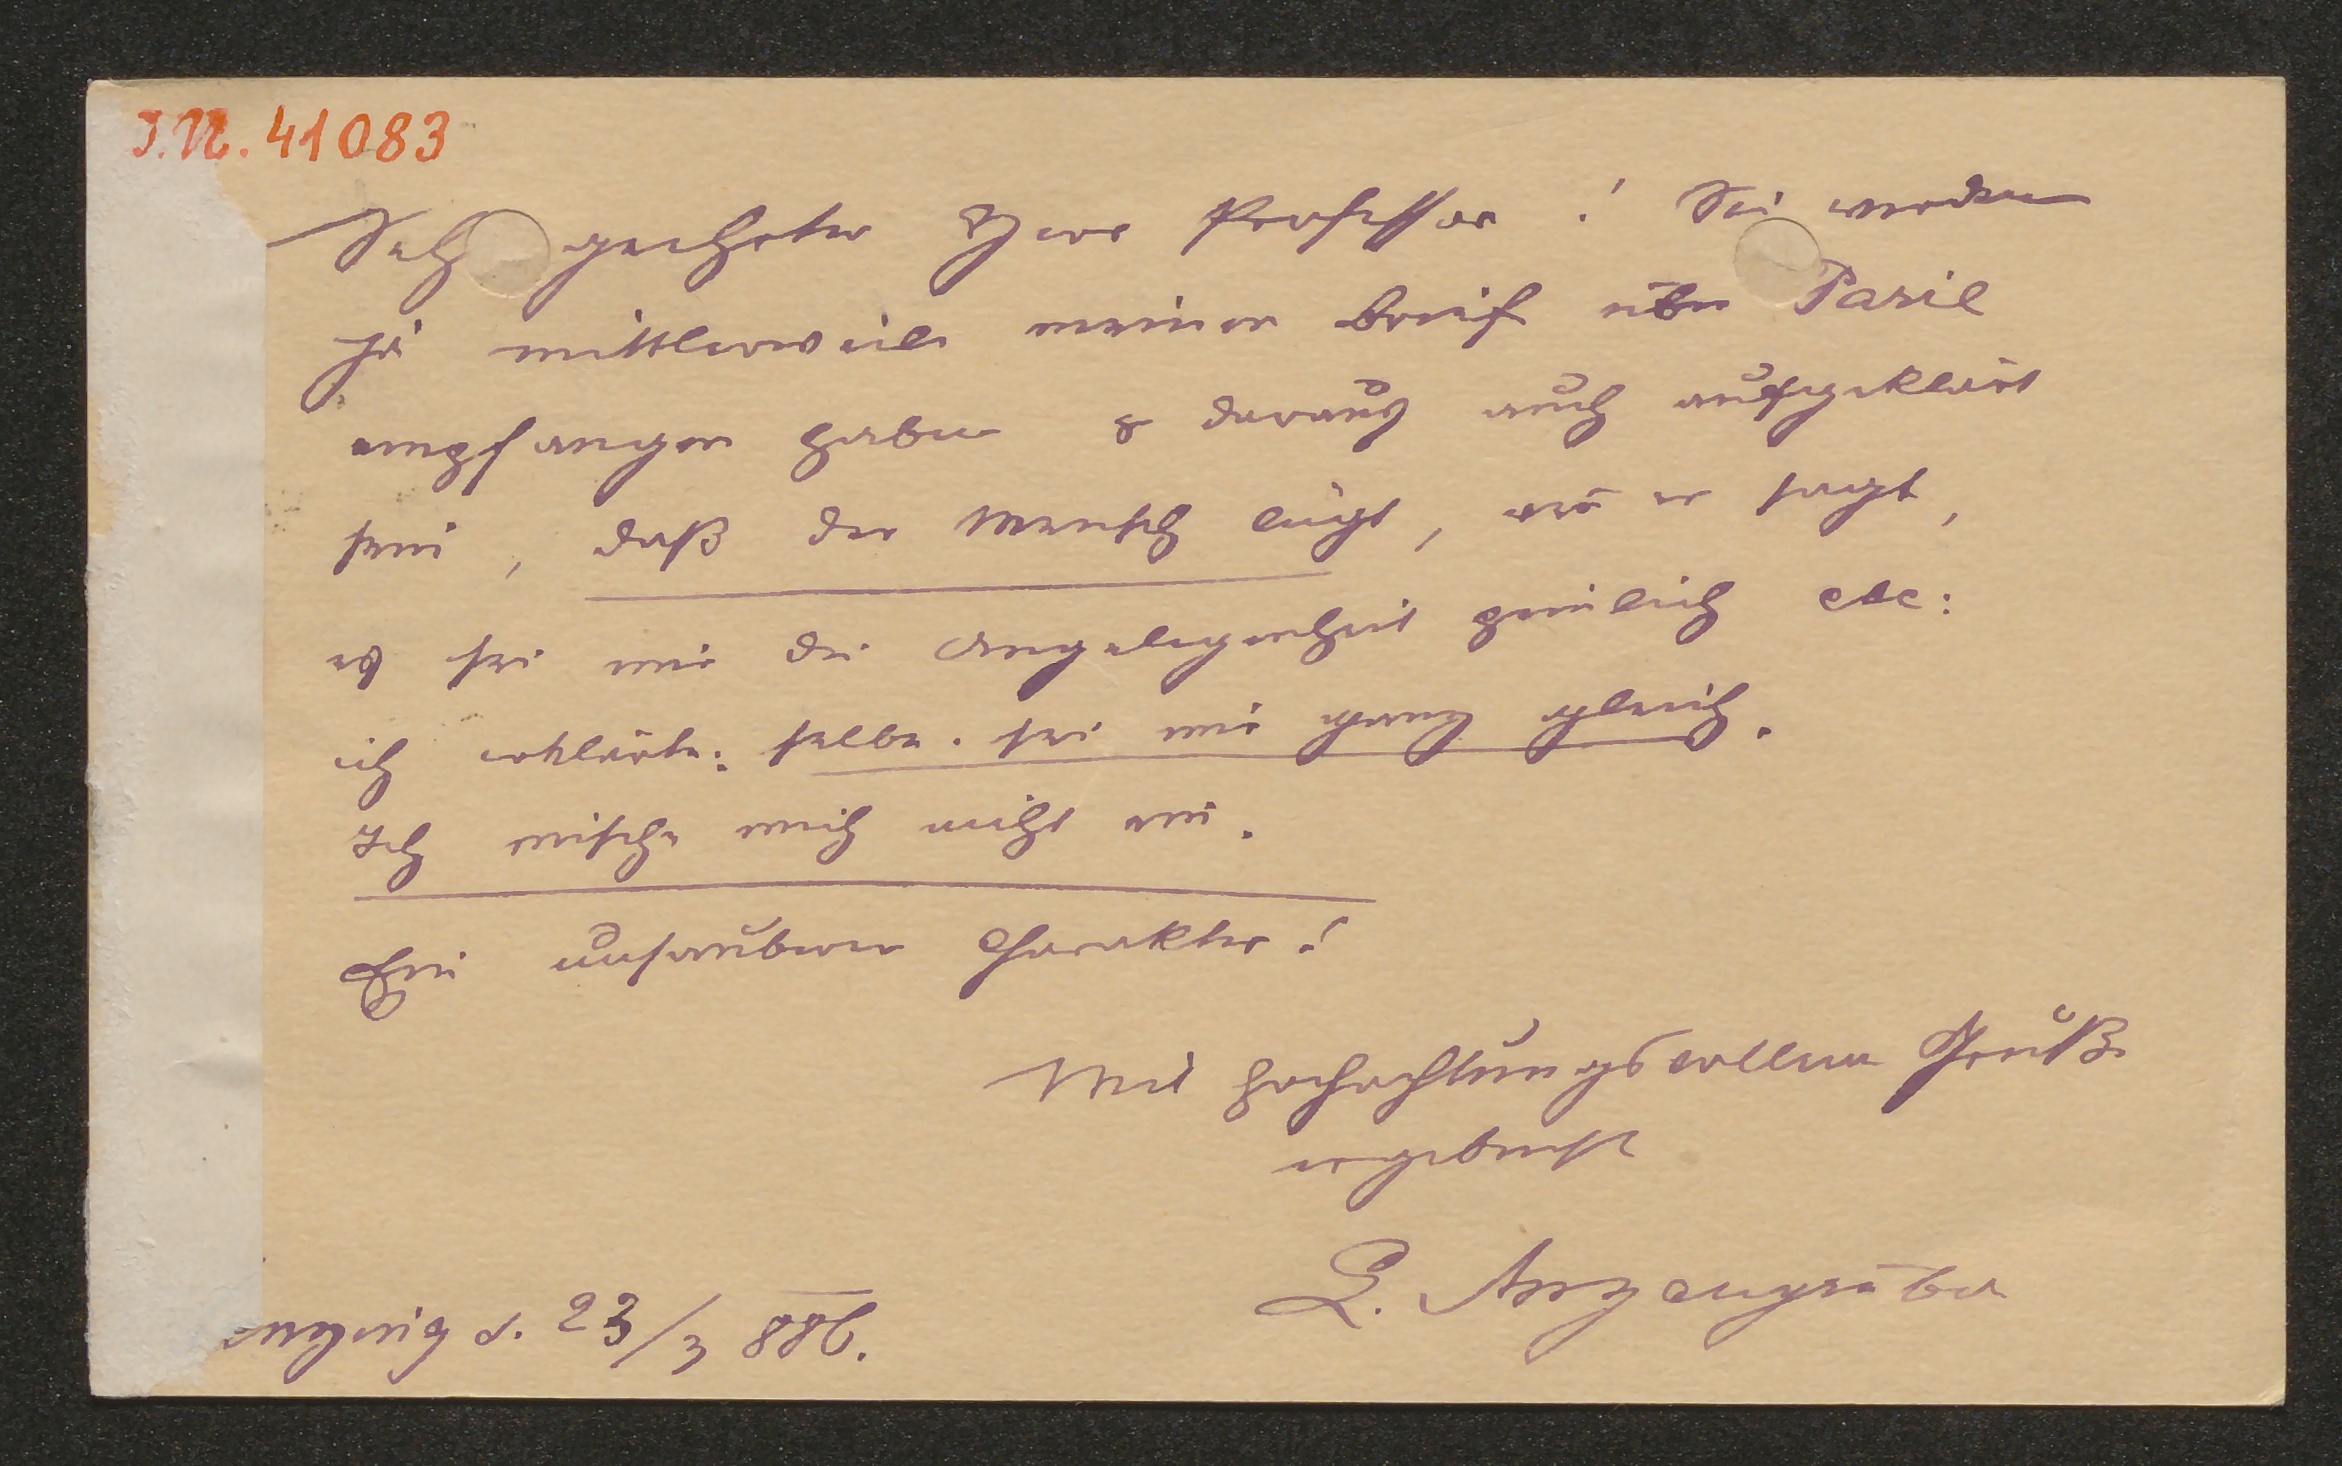 J.N. 41083
Sehr geehrter Herr Professor! Sie werden
ja mittlerweile meinen Brief über
empfangen haben & daraus auch aufgeklärt
sein, daß der Mensch lügt, wenn er sagt,
es sei mir die Angelegenheit peinlich etc:
ich erklärte: selbe. sei mir ganz gleich.
Ich mische mich nicht ein.
Ein unsauberer Charakter!
Mit hochachtungsvollem Gruße
ergebenst
L. Anzengruber
enzing d. 23/3 886.